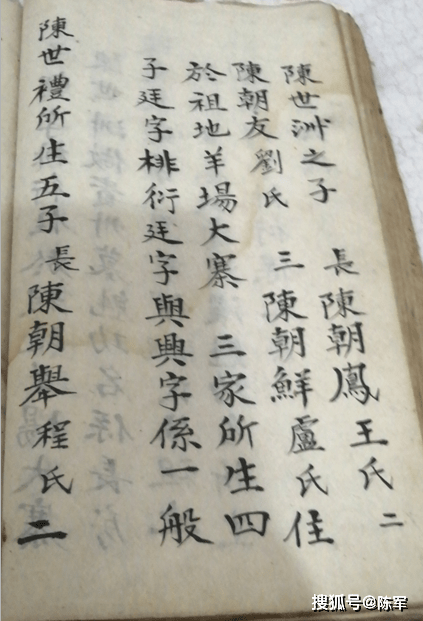 陳世洲之子 長陳朝鳳王氏二
陳朝友劉氏 三陳朝鮮盧氏住
於祖地羊場大寨 三家所生四
子廷字棑衍廷字與興字係一般
陳世禮所生五子長陳朝舉程氏二
搜狐号@陈军